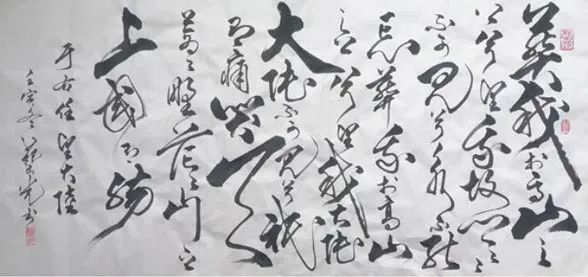 葬我於高山之
上兮望我故乡々々
不可見兮永不能
忘葬我於高山
之上兮望我大陸
大陸不可見兮祇
有痛哭天
蒼々野茫々山之
上國有殤
于右任望大陸
壬寅冬 书